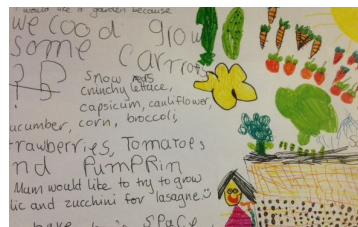 I would like a garden because
We cood grow
some carrots
Snow peas
crunchy lettace,
capsicum, cauliflower,
ucumber, corn, broccoli,
rawberries, Tomatoes
nd PumPkin
Mum would like to try to grow
lic and zucchini for lasagne
space